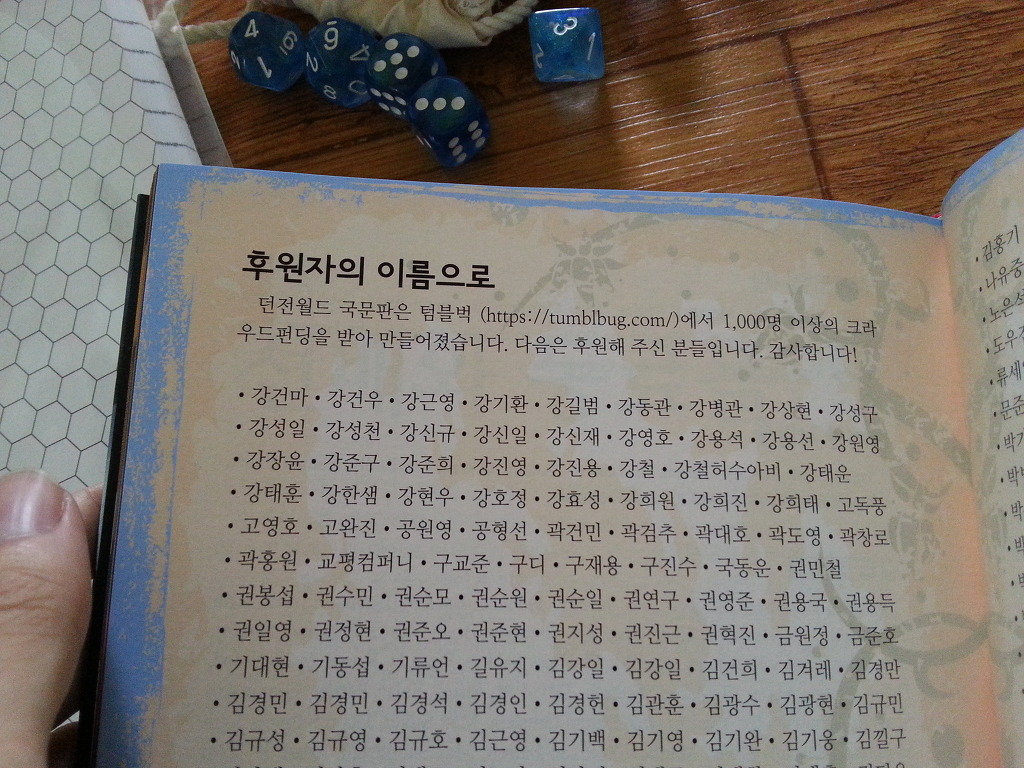 후원자의 이름으로
던전월드 국문판은 텀블벅 (https://tumblbug.com/)에서 1,000명 이상의 크라
우드펀딩을 받아 만들어졌습니다. 다음은 후원해 주신 분들입니다. 감사합니다!
• 강건마 • 강건우 • 강근영 • 강기환 • 강길범 • 강동관 • 강병관 • 강상현 • 강성구
• 강성일 • 강성천 • 강신규 • 강신일 • 강신재 • 강영호 • 강용석 • 강용선 • 강원영
• 강장윤 • 강준구 • 강준희 • 강진영 • 강진용 • 강철 • 강철허수아비 • 강태운
• 강태훈 • 강한샘 • 강현우 • 강호정 • 강효성 • 강희원 • 강희진 • 강희태 • 고독풍
• 고영호 • 고완진 • 공원영 • 공형선 • 곽건민 • 곽검추 • 곽대호 • 곽도영 • 곽창로
• 곽홍원 • 교평컴퍼니 • 구교준 • 구디 • 구재용 • 구진수 • 국동운 • 권민철
• 권봉섭 • 권수민 • 권순모 • 권순원 • 권순일 • 권연구 • 권영준 • 권용국 • 권용득
• 권일영 • 권정현 • 권준오 • 권준현 • 권지성 • 권진근 • 권혁진 • 금원정 • 금준호
• 기대현 • 기동섭 • 기류언 • 길유지 • 김강일 • 김강일 • 김건희 • 김겨레 • 김경만
• 김경민 • 김경민 • 김경석 • 김경인 • 김경헌 • 김관훈 • 김광수 • 김광현 • 김규민
• 김규성 • 김규영 • 김규호 • 김근영 • 김기백 • 김기영 • 김기완 • 김기웅 • 김낄구
• 김홍기
• 나유중
• 노은석
• 도우
• 류세
• 문준
• 박기
4
1
9
4
8
3
2
1